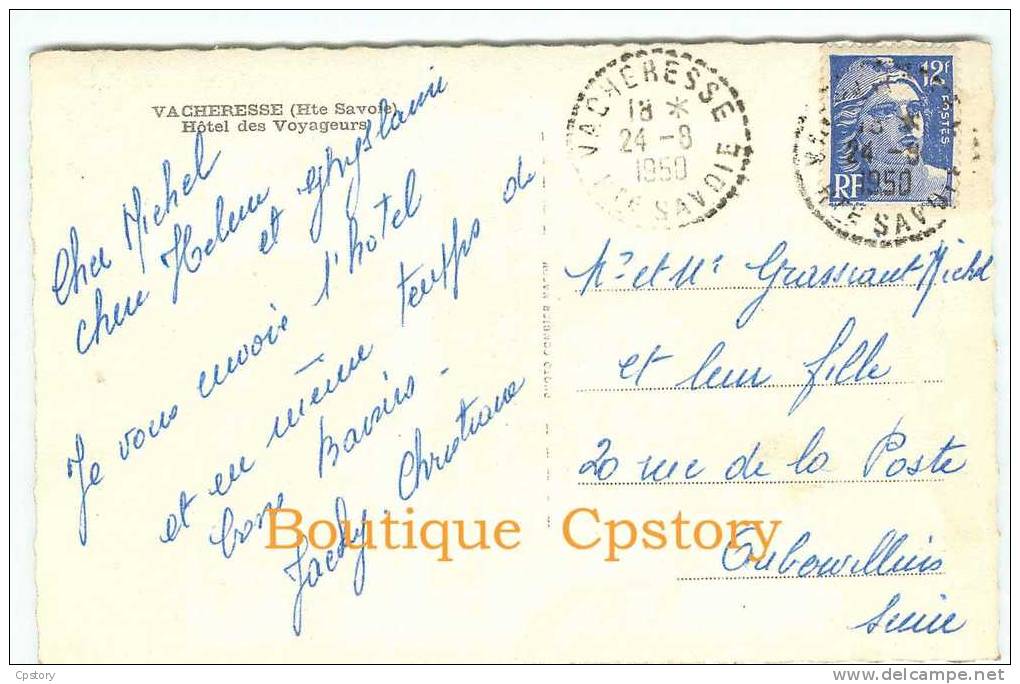 VACHERESSE (Hte Savoie)
Hôtel des Voyageurs
Cher Michel
chere Helene
et Ghyslaine
Je vous envoie l'hôtel
et en même temps de
bons Baisers -
Jacky. Christiane
PHOTO COMBIER MACON
VACHERESSE
18 *
24 -8
1950
HTE SAVOIE
12F
POSTES
RF
18 *
24 -8
1950
HTE SAVOIE
Mr et Me Grassiant Michel
et leur fille
20 rue de la Poste
Aubervilliers
Seine
Boutique Cpstory
Cpstory
http://www.delcampe.net